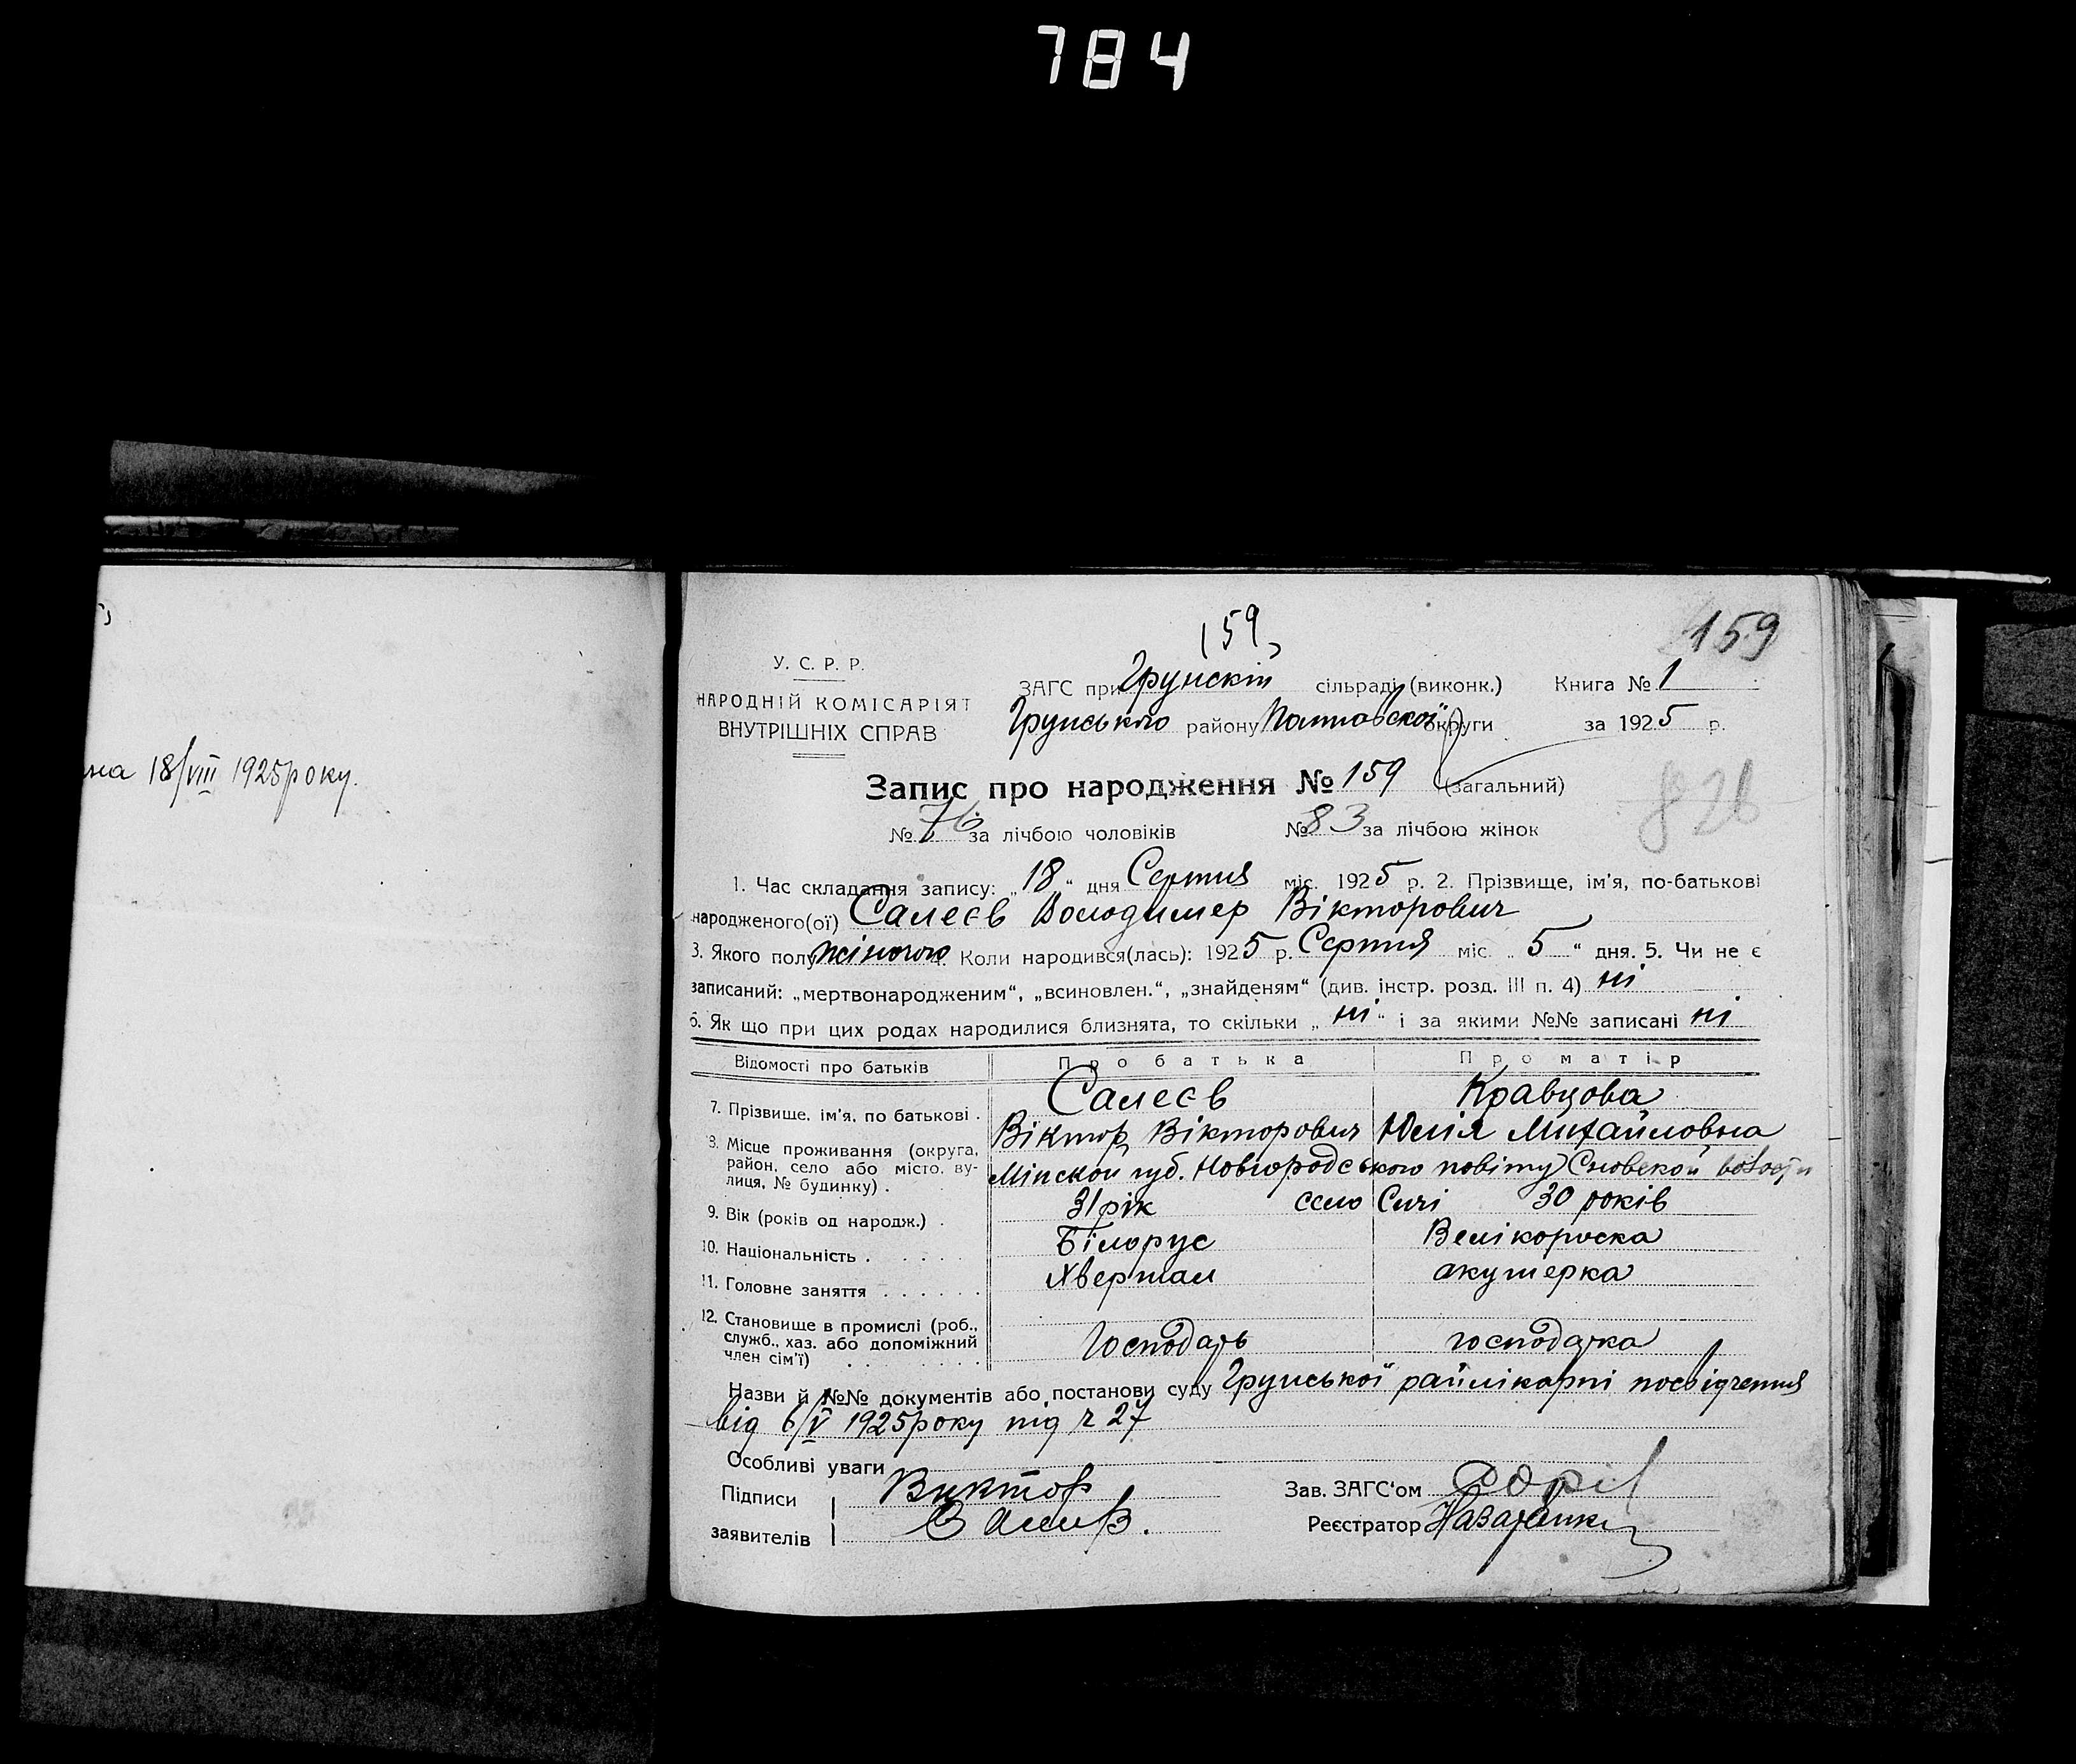 784
на 18/VIII 1925 року.
159
159
У. С. Р. Р.
НАРОДНІЙ КОМІСАРІЯТ
ВНУТРІШНІХ СПРАВ
ЗАГС при Грунскій сільраді (виконк.) Книга № 1
Грунського району Полтавської округи за 1925 р.
Запис про народження № 159 (загальний)
826
№ 76 за лічбою чоловіків № 83 за лічбою жінок
1. Час складання запису: „18“ дня Серпня міс. 1925 р. 2. Прізвище, ім'я, по-батькові
народженого(ої) Салеєв Володимер Вікторович
3. Якого полу жіночого Коли народився(лась): 1925 р. Серпня міс. „5“ дня. 5. Чи не є
записаний: „мертвонародженим“, „всиновлен.“, „знайденям“ (див. інстр. розд. III п. 4) ні
6. Як що при цих родах народилися близнята, то скільки „ні“ і за якими №№ записані ні
Відомості про батьків Про батька Про матір
7. Прізвище, ім'я, по батькові . Салеєв Кравцова
Віктор Вікторович Юлія Михайловна
8. Місце проживання (округа, район, село або місто, вулиця, № будинку) . Мінской губ. Новгородського повіту Сновской волости
село Сичі
9. Вік (років од народж.) . 31 рік 30 років
10. Національність . . . . . Білорус Велікороска
11. Головне заняття . . . . . . Хвершал акушерка
12. Становище в промислі (роб., служб., хаз. або допоміжний член сім'ї) . . . . . . . Господарь господарка
Назви й №№ документів або постанови суду Грунської райлікарні посвідчення
від 6/V 1925 року під ч 27
Особливі уваги
Підписи заявителів Виктор
Зав. ЗАГС'ом
Реєстратор Назаренко